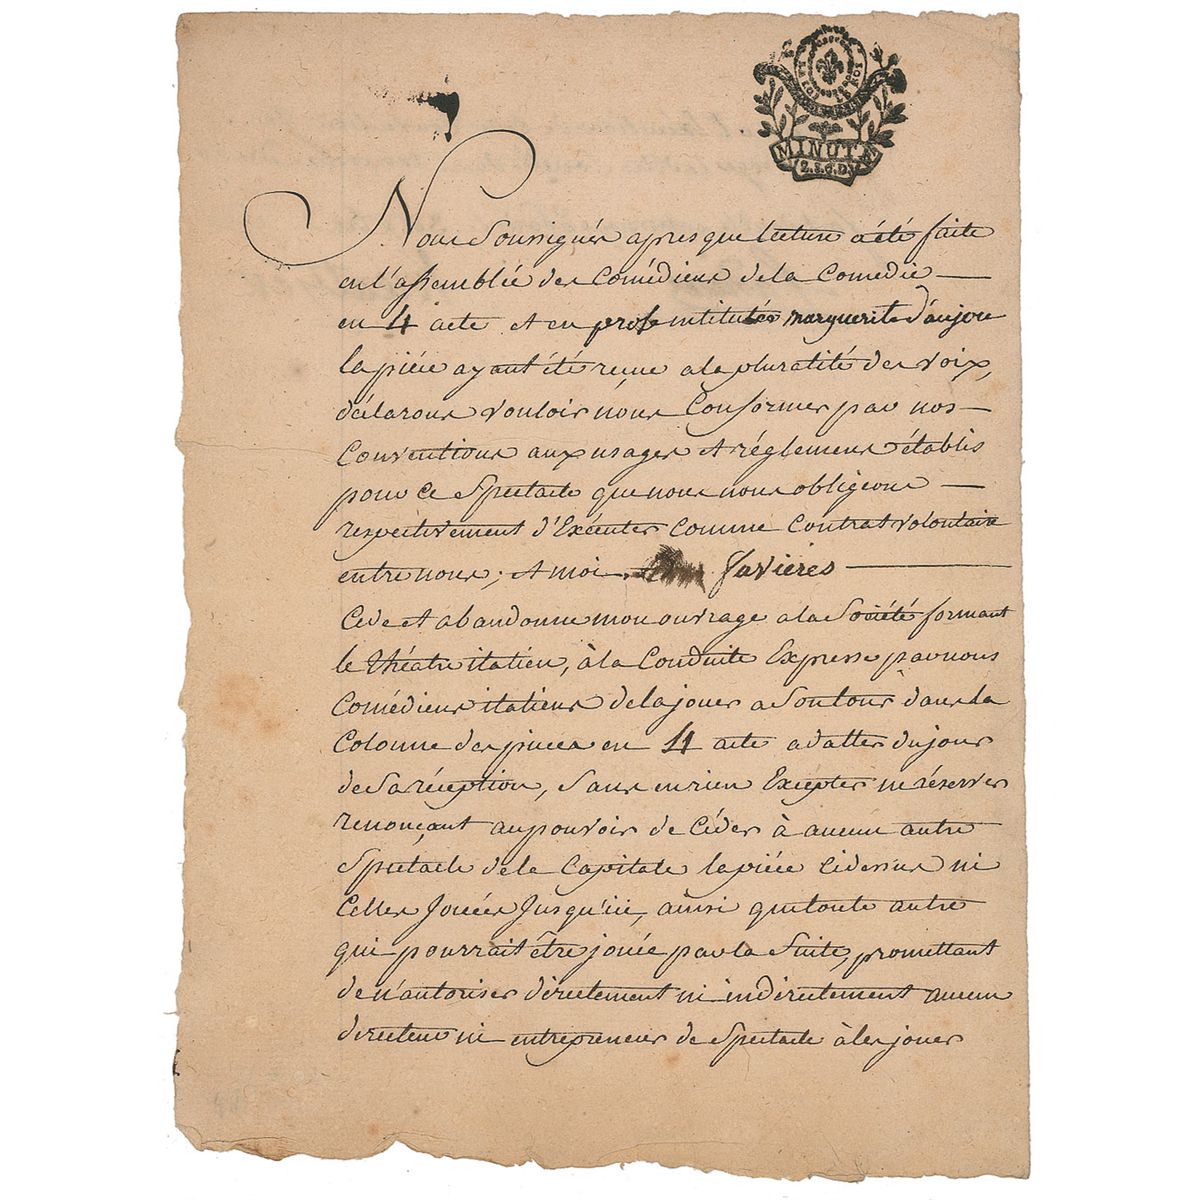 LA LOI ET LE ROI
MINUTE
2. S. 6. D.
Nous Soussignés apres que lecture a été faite
en l'assemblée des Comédiens de la Comedie —
en 4 acte et en prose intitulés marguerite d'anjou
la piéce ayant été reçue a la pluralité des voix,
déclarons vouloir nous Conformer par nos —
Conventions aux usages et réglemens établis
pour ce Spectacle que nous nous obligeons —
respectivement d'Exécuter comme contrat volontaire
entre nous; et moi favieres —
Cede et abandonne mon ouvrage a la Société formant
le théatre italien, à la Conduite Expresse par nous
Comédiens italiens de la jouer a Son tour dans la
Colonne des pieces en 4 acte a datter du jour
de Sa réception, Sans en rien Excepter ni réserver
renonçant au pouvoir de Céder à aucun autre
Spectacle de la Capitale la piéce cidessus ni
Celles Jouées Jusqu'ici, ainsi que toute autre
qui pourrait être jouée par la Suite, promettant
de n'autoriser directement ni indirectement aucun
directeur ni entrepreneur de Spectacle à les jouer